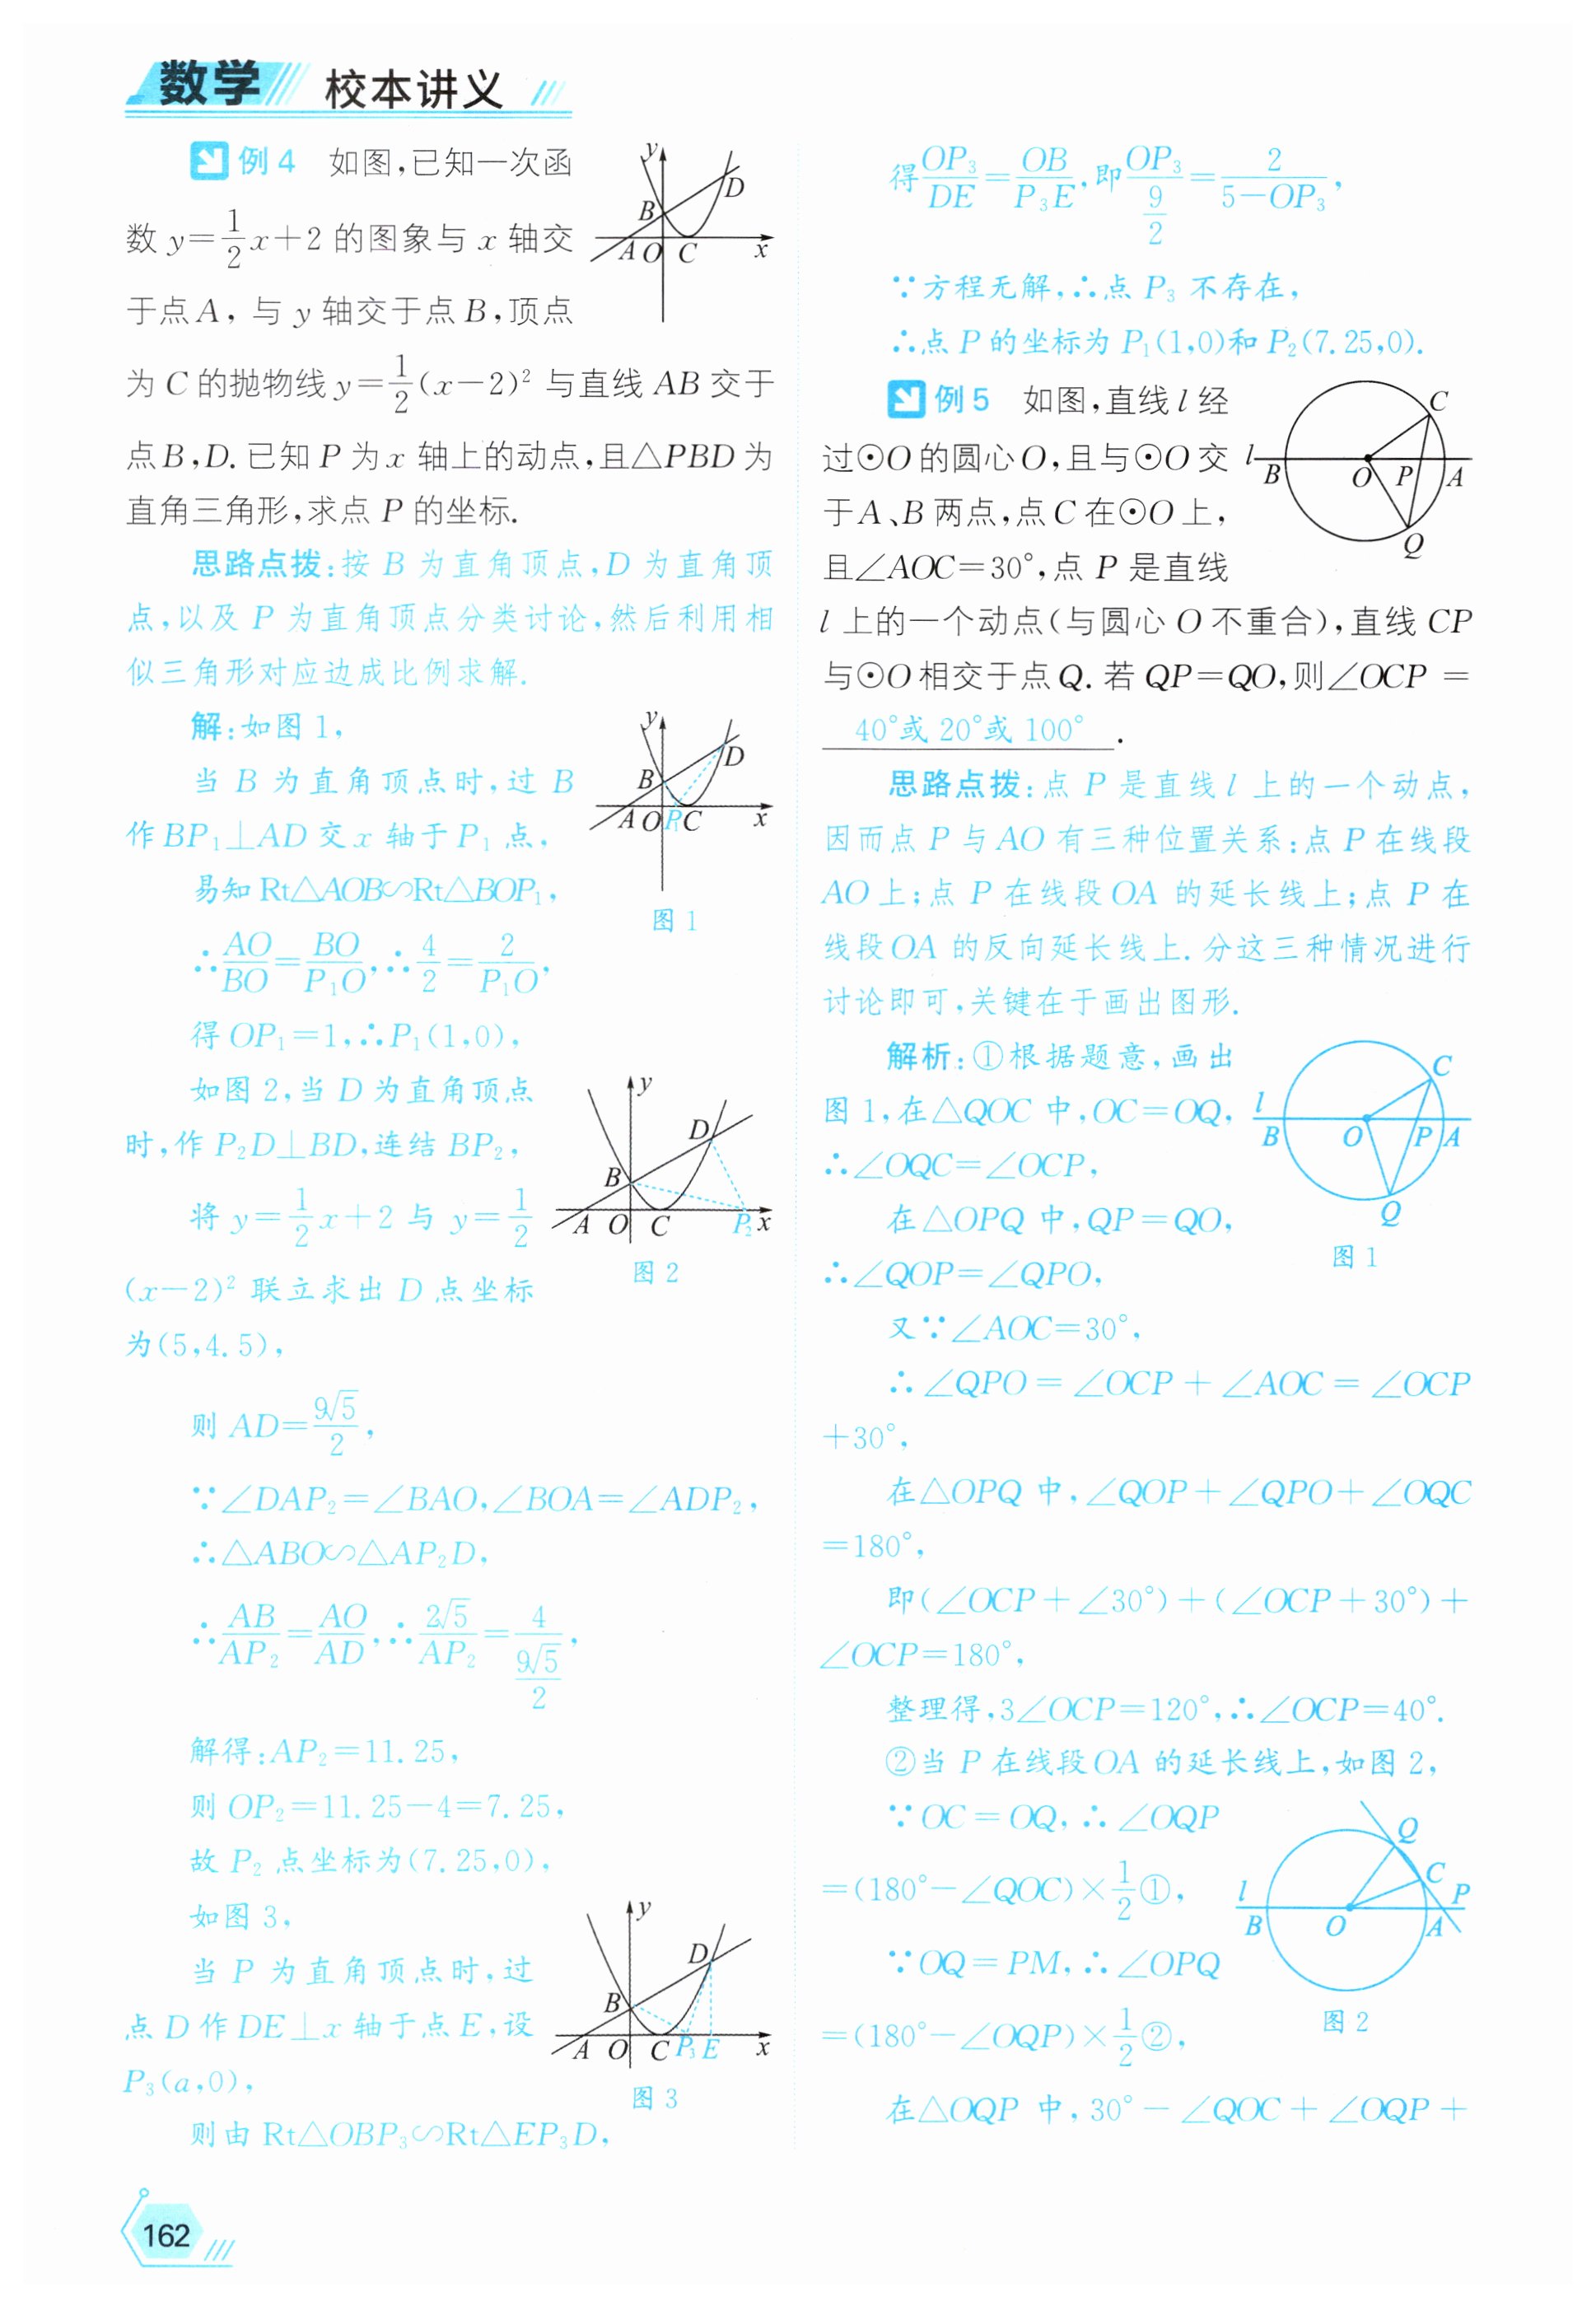 数学 校本讲义
例4 如图,已知一次函
数 y=1/2x+2 的图象与 x 轴交
于点A, 与 y 轴交于点 B,顶点
为 C 的抛物线 y=1/2(x-2)² 与直线 AB 交于
点B,D. 已知 P 为 x 轴上的动点,且△PBD 为
直角三角形,求点 P 的坐标.
y
B
D
A O C x
思路点拨:按 B 为直角顶点,D 为直角顶
点,以及 P 为直角顶点分类讨论,然后利用相
似三角形对应边成比例求解.
解:如图 1,
当 B 为直角顶点时,过 B
作BP₁⊥AD 交 x 轴于 P₁ 点,
易知 Rt△AOB∽Rt△BOP₁,
∴AO/BO=BO/P₁O,∴4/2=2/P₁O,
得 OP₁=1,∴P₁(1,0),
y
B
D
A O P₁ C x
图 1
如图 2,当 D 为直角顶点
时,作 P₂D⊥BD,连结 BP₂,
将 y=1/2x+2 与 y=1/2
(x-2)² 联立求出 D 点坐标
为(5,4.5),
y
D
B
A O C P₂ x
图 2
则 AD=9√5/2,
∵∠DAP₂=∠BAO,∠BOA=∠ADP₂,
∴△ABO∽△AP₂D,
∴AB/AP₂=AO/AD,∴2√5/AP₂=4/(9√5/2),
解得:AP₂=11.25,
则 OP₂=11.25-4=7.25,
故 P₂ 点坐标为(7.25,0),
如图 3,
当 P 为直角顶点时,过
点 D 作 DE⊥x 轴于点 E,设
P₃(a,0),
则由 Rt△OBP₃∽Rt△EP₃D,
y
D
B
A O C P₃ E x
图 3
162
得OP₃/DE=OB/P₃E,即OP₃/(9/2)=2/(5-OP₃),
∵方程无解,∴点 P₃ 不存在,
∴点 P 的坐标为 P₁(1,0)和 P₂(7.25,0).
例5 如图,直线 l 经
过⊙O 的圆心 O,且与⊙O 交
于 A、B 两点,点 C 在⊙O 上,
且∠AOC=30°,点 P 是直线
l 上的一个动点(与圆心 O 不重合),直线 CP
与⊙O 相交于点 Q. 若 QP=QO,则∠OCP =
40°或 20°或 100° .
C
l
B O P A
Q
思路点拨:点 P 是直线 l 上的一个动点,
因而点 P 与 AO 有三种位置关系:点 P 在线段
AO 上;点 P 在线段 OA 的延长线上;点 P 在
线段OA 的反向延长线上. 分这三种情况进行
讨论即可,关键在于画出图形.
解析:①根据题意,画出
图 1,在△QOC 中,OC=OQ,
∴∠OQC=∠OCP,
在△OPQ 中,QP=QO,
∴∠QOP=∠QPO,
C
l
B O P A
Q
图 1
又∵∠AOC=30°,
∴∠QPO=∠OCP+∠AOC=∠OCP
+30°,
在△OPQ 中,∠QOP+∠QPO+∠OQC
=180°,
即(∠OCP+∠30°)+(∠OCP+30°)+
∠OCP=180°,
整理得,3∠OCP=120°,∴∠OCP=40°.
②当 P 在线段OA 的延长线上,如图 2,
∵OC=OQ,∴∠OQP
=(180°-∠QOC)×1/2①,
∵OQ=PM,∴∠OPQ
=(180°-∠OQP)×1/2②,
Q
C
l P
B O A
图 2
在△OQP 中,30°-∠QOC+∠OQP+